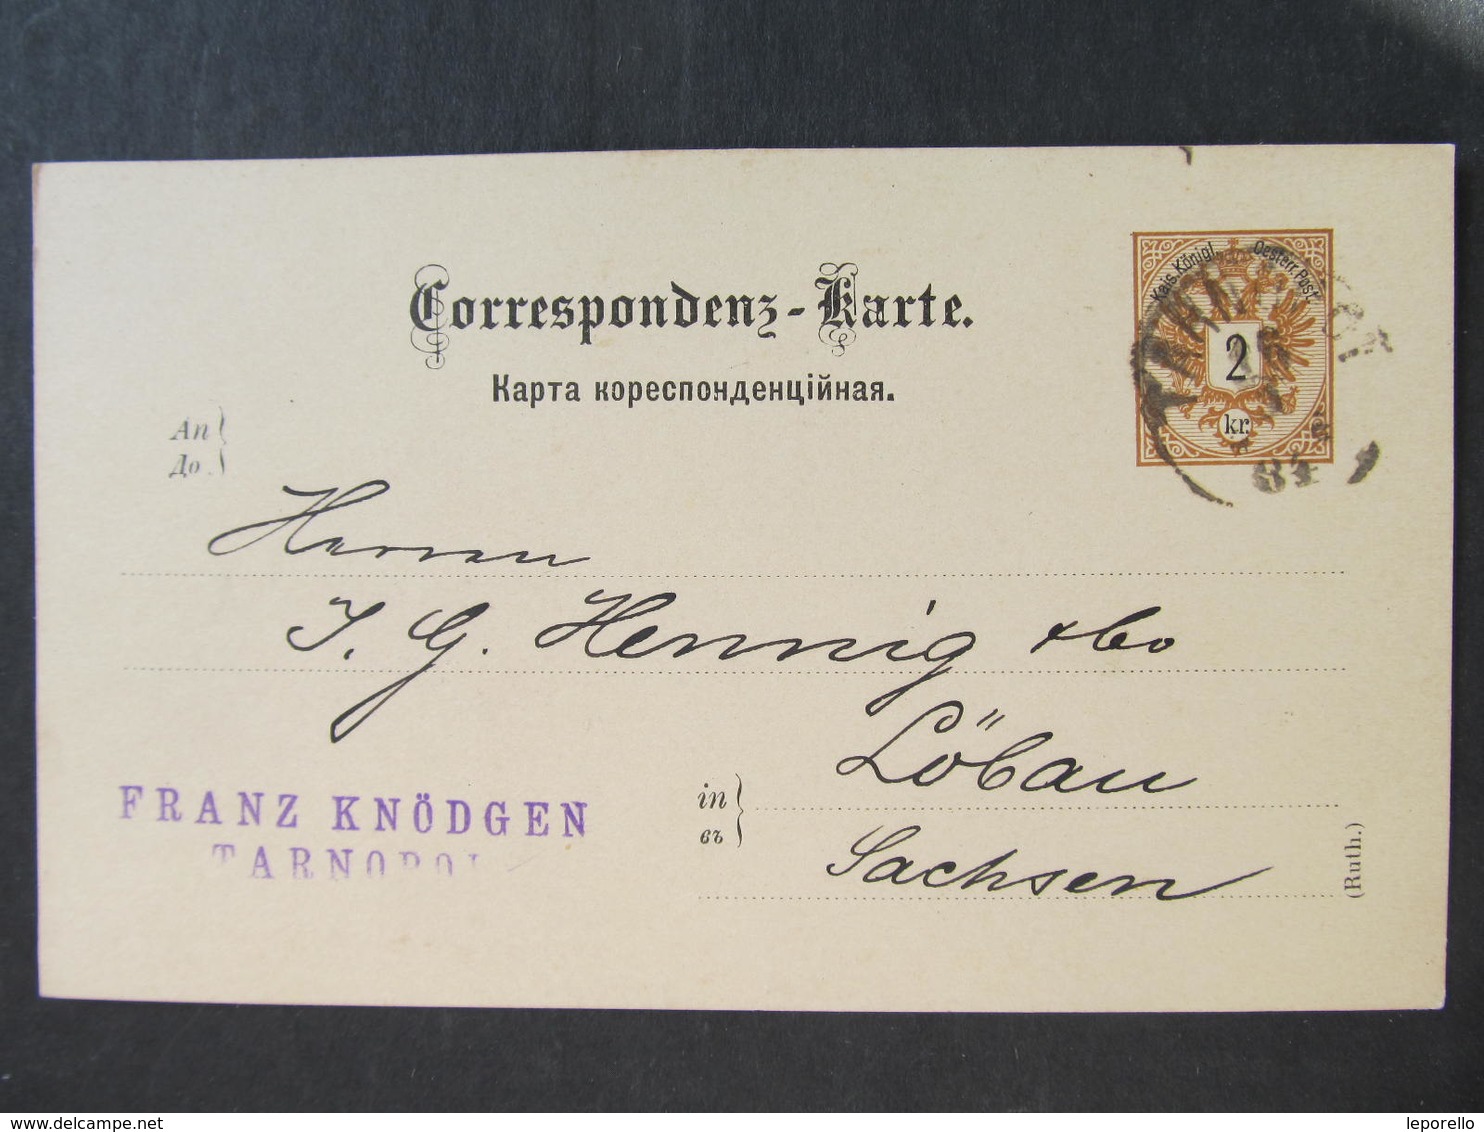 Correspondenz-Karte.
Карта кореспонденційная.
An
До
Kais. Königl. Oesterr. Post.
2
kr.
TARNOPOL
84
Herren
J. G. Hennig & Co
in
въ
Löbau
Sachsen
FRANZ KNÖDGEN
TARNOPOL
(Ruth.)
delcampe.net
leporello